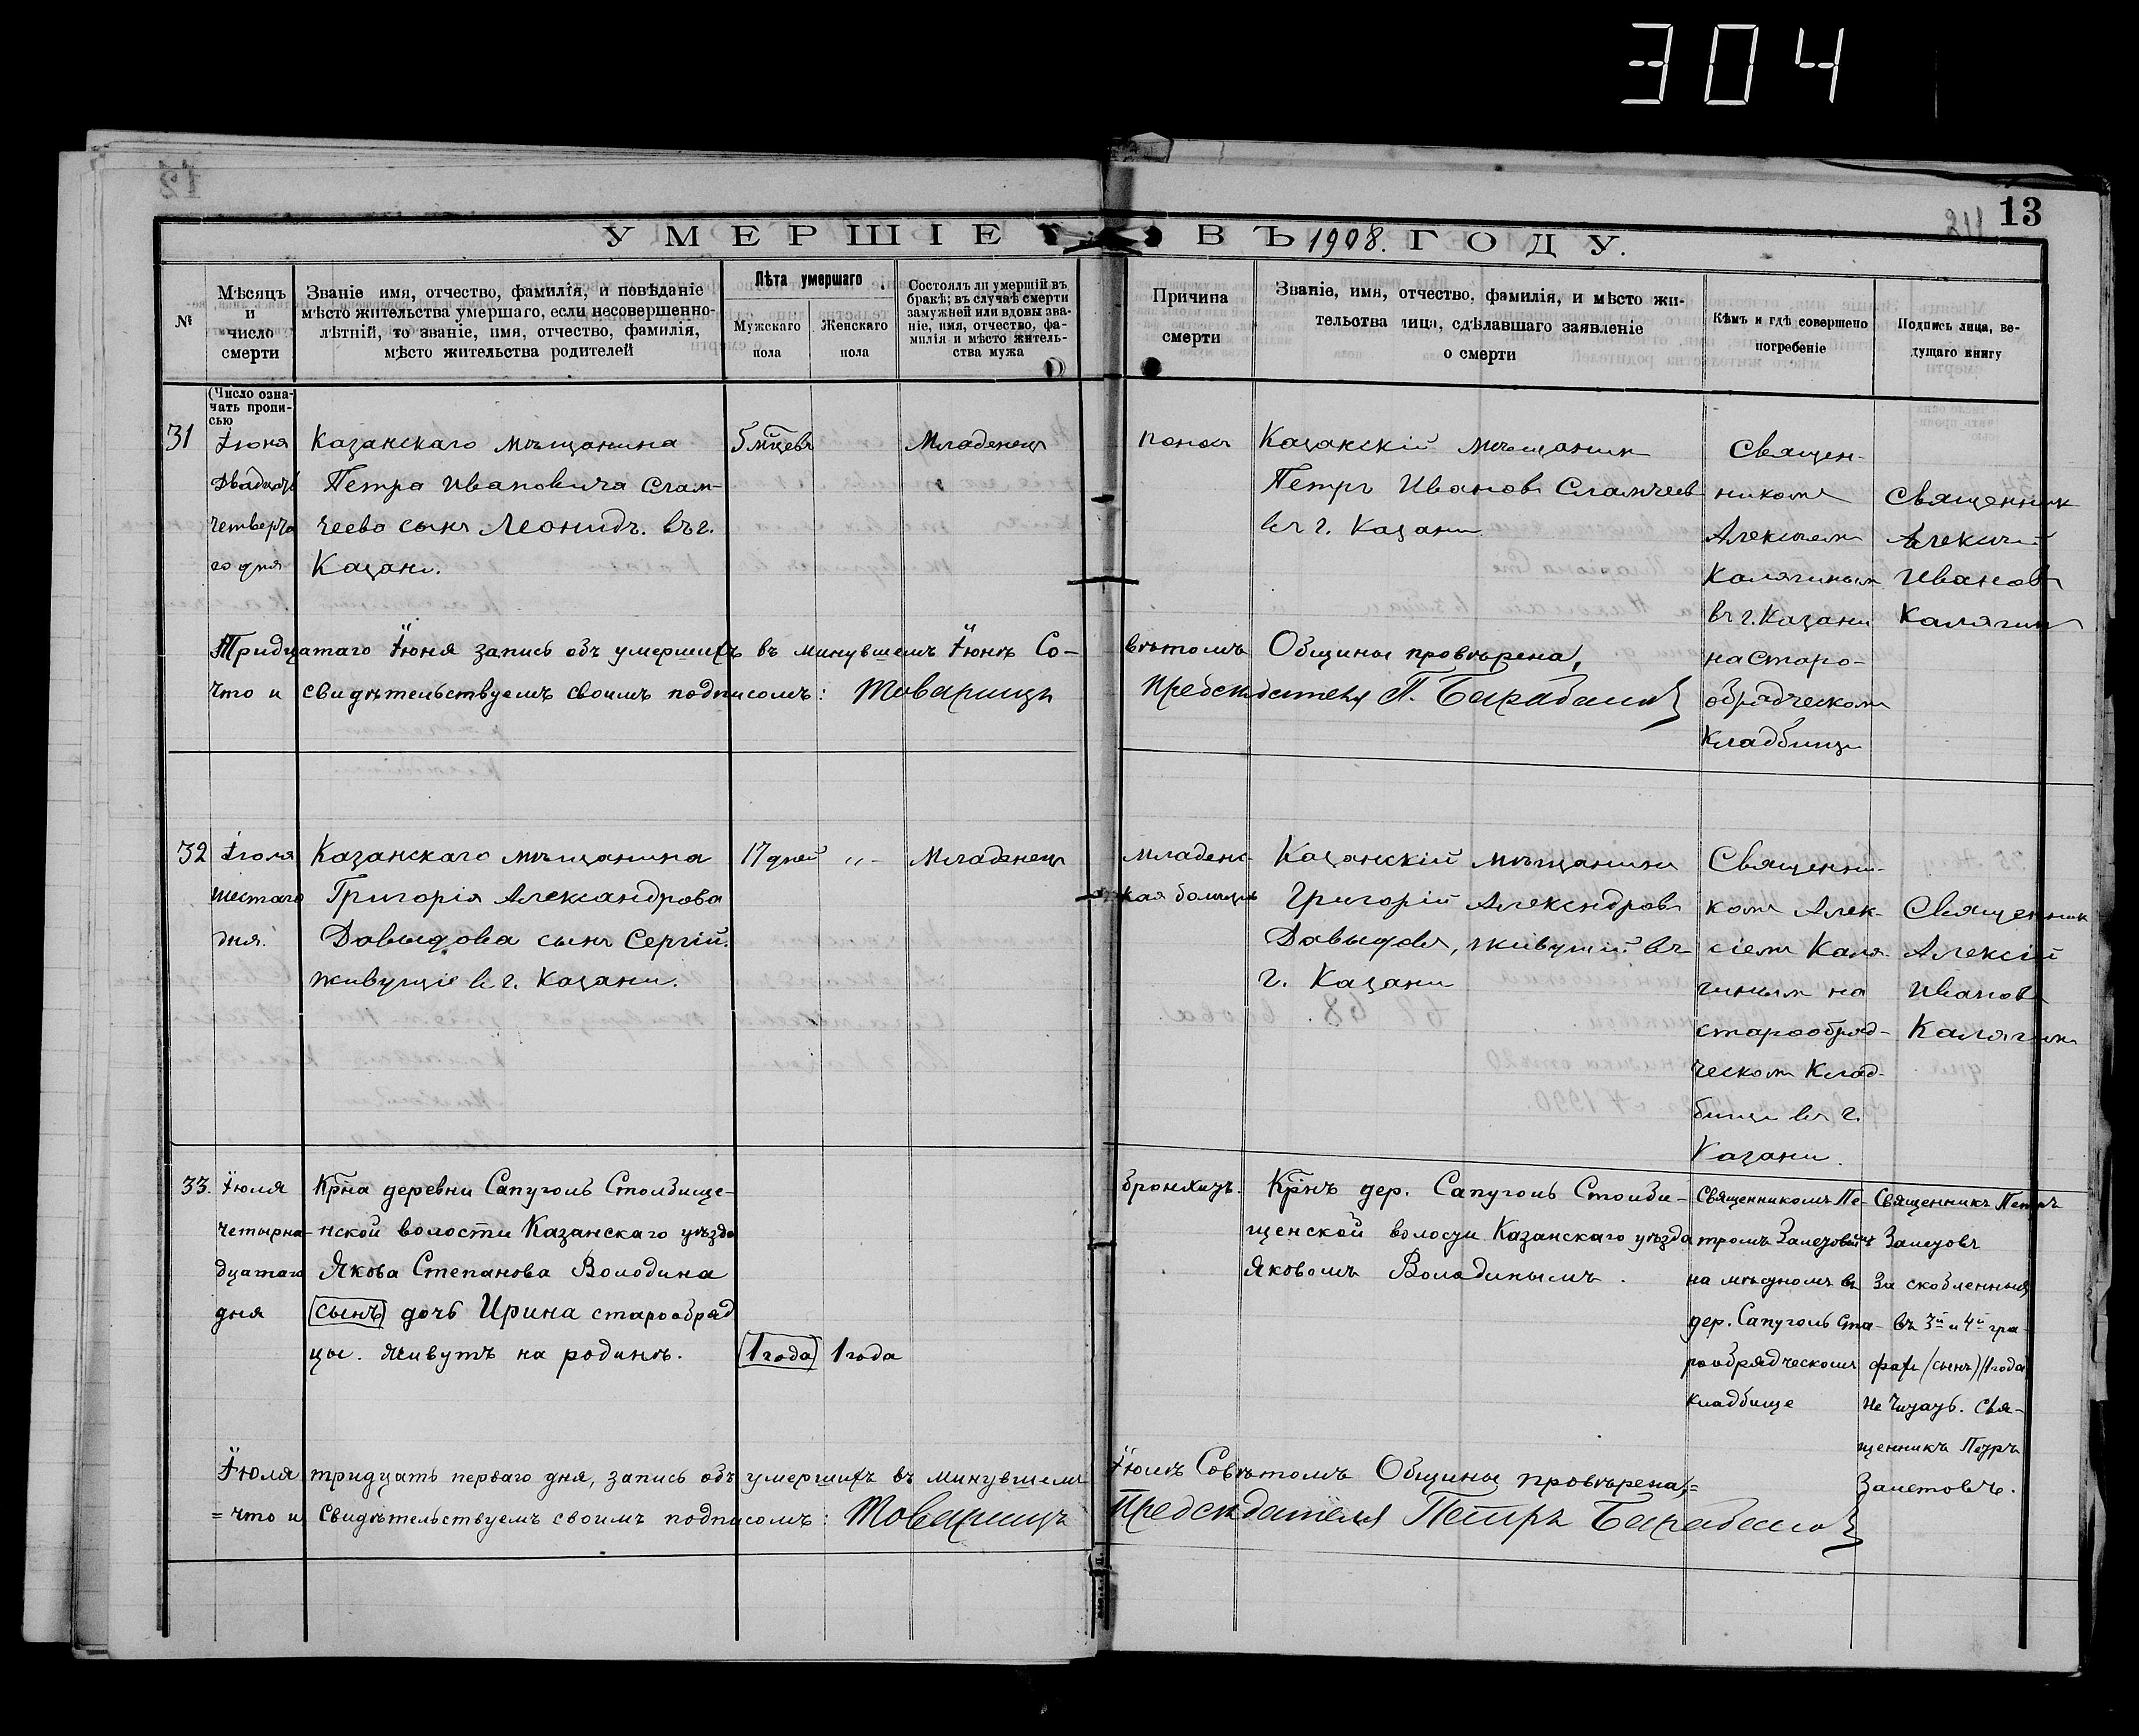 304
13
211
УМЕРШІЕ ВЪ 1908. ГОДУ.
№
Мѣсяцъ
и
число
смерти
Званіе имя, отчество, фамилія, и повѣданіе
мѣсто жительства умершаго, если несовершенно-
лѣтній, то званіе, имя, отчество, фамилія,
мѣсто жительства родителей
Лѣта умершаго
Мужскаго
пола
Женскаго
пола
Состоялъ ли умершій въ
бракѣ; въ случаѣ смерти
замужней или вдовы зва-
ніе, имя, отчество, фа-
милія и мѣсто житель-
ства мужа
Причина
смерти
Званіе, имя, отчество, фамилія, и мѣсто жи-
тельства лица, сдѣлавшаго заявленіе
о смерти
Кѣмъ и гдѣ совершено
погребеніе
Подпись лица, ве-
дущаго книгу
(Число озна-
чать пропи-
сью
31
Іюня
Двадцать
четверта
го дня
Казанскаго мѣщанина
Петра Ивановича Слам-
чеева сынъ Леонидъ. въ г.
Казан.
5 мцевъ
Младенецъ
поносъ
Казанскій мѣщанинъ
Петръ Ивановъ Сламчеевъ
въ г. Казани
Священ-
никомъ
Алексіемъ
Калягинымъ
въ г. Казани
на Старо-
обрядческомъ
Кладбищѣ
Священникъ
Алексій
Ивановъ
Калягинъ
Тридцатаго Іюня запись объ умершихъ въ минувшемъ Іюнѣ Со-
вѣтомъ Общины провѣрена,
что и свидѣтельствуемъ своимъ подписомъ: Товарищъ
Предсѣдателя П. Барабановъ
32
Іюля
шестаго
дня.
Казанскаго мѣщанина
Григорія Александрова
Давыдова сынъ Сергій.
живущіе въ г. Казани.
17 дней
"-
Младенецъ
младенс-
кая болѣзнь
Казанскій мѣщанинъ
Григорій Алексндровъ
Давыдовъ, живущій въ
г. Казани
Священни-
комъ Алек-
сіемъ Каля-
гинымъ на
старообряд-
ческомъ Клад-
бищѣ въ г.
Казани.
Священникъ
Алексій
Ивановъ
Калягинъ
33.
Іюля
четырна-
дцатаго
дня
Крна деревни Сапуголь Столбище-
нской волости Казанскаго уѣзда
Якова Степанова Володина
(сынъ) дочь Ирина старообряд
цы. живутъ на родинѣ.
(1 года)
1 года
бронхитъ.
Крнъ дер. Сапуголь Столби-
щенской волости Казанскаго уѣзда
Яковомъ Володинымъ.
Священникомъ Пе-
тромъ Залетовымъ
на мѣстномъ въ
дер. Сапуголь Ста-
рообрядческомъ
кладбище
Священникъ Петръ
Залетовъ
За скобленныя
въ 3й и 4й гра-
фахъ (сынъ) (1 года)
не читать. Свя-
щенникъ Петръ
Залетовъ.
Іюля тридцать перваго дня, запись объ умершихъ въ минувшемъ
Іюлѣ Совѣтомъ Общины провѣрена,=
= что и свидѣтельствуемъ своимъ подписомъ: Товарищъ
Предсѣдателя Петръ Барабановъ